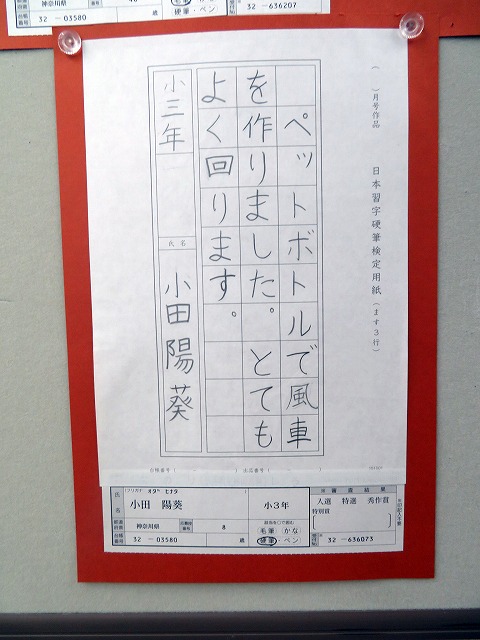 神奈川県
毛筆
硬筆・ペン
32 - 03580
32 - 636207
( )月号作品 日本習字硬筆検定用紙(ます3行)
ペットボトルで風車
を作りました。とても
よく回ります。
小三年
氏名
小田陽葵
フリガナ オダ ヒナタ
氏名
小田 陽葵
小3年
神奈川県
8
歳
32 - 03580
毛筆 かな
硬筆・ペン
審査結果
入選 特選 秀作賞
特別賞
32 - 636073